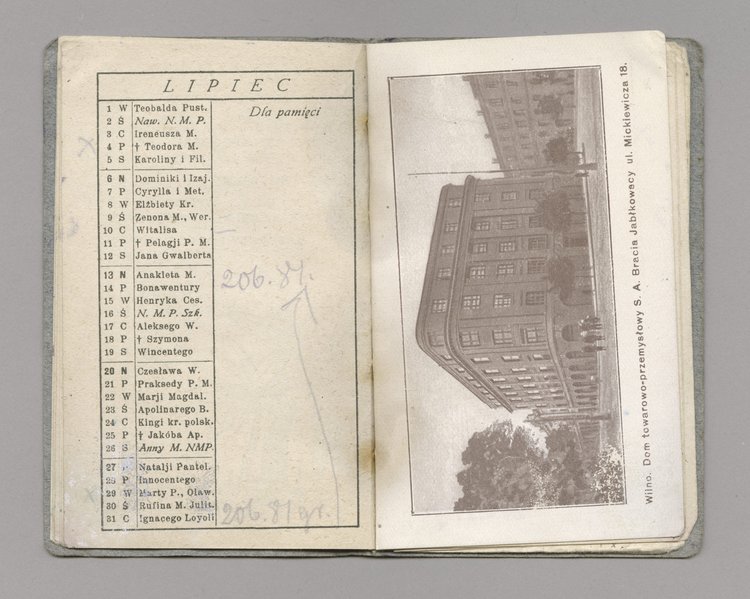 LIPIEC
Dla pamięci
1 W Teobalda Pust.
2 Ś Naw. N. M. P.
3 C Ireneusza M.
4 P † Teodora M.
5 S Karoliny i Fil.
6 N Dominiki i Izaj.
7 P Cyrylla i Met.
8 W Elżbiety Kr.
9 Ś Zenona M., Wer.
10 C Witalisa
11 P † Pelagji P. M.
12 S Jana Gwalberta
13 N Anakleta M.
14 P Bonawentury
15 W Henryka Ces.
16 Ś N. M. P. Szk.
17 C Aleksego W.
18 P † Szymona
19 S Wincentego
20 N Czesława W.
21 P Praksedy P. M.
22 W Marji Magdal.
23 Ś Apolinarego B.
24 C Kingi kr. polsk.
25 P † Jakóba Ap.
26 S Anny M. NMP.
27 N Natalji Pantel.
28 P Innocentego
29 W Marty P., Oław.
30 Ś Rufina M. Julit.
31 C Ignacego Loyoli
206.81.
206.81 gr.
Wilno. Dom towarowo-przemysłowy S. A. Bracia Jabłkowscy ul. Mickiewicza 18.